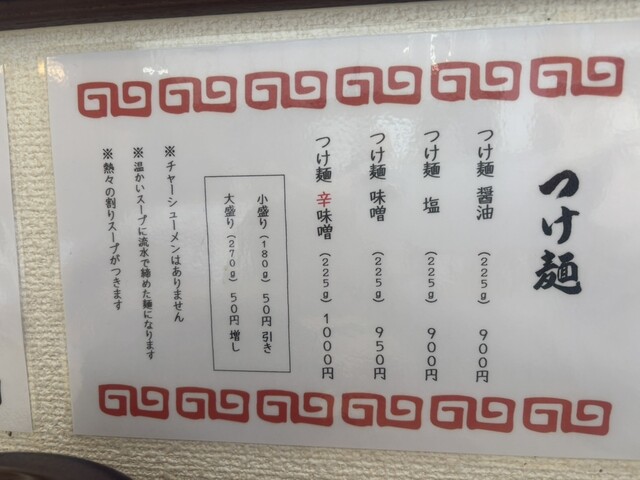 つけ麺
つけ麺 醤油 (225g) 900円
つけ麺 塩 (225g) 900円
つけ麺 味噌 (225g) 950円
つけ麺 辛味噌 (225g) 1000円
小盛り (180g) 50円 引き
大盛り (270g) 50円 増し
※チャーシューメンはありません
※温かいスープに流水で締めた麺になります
※熱々の割りスープがつきます